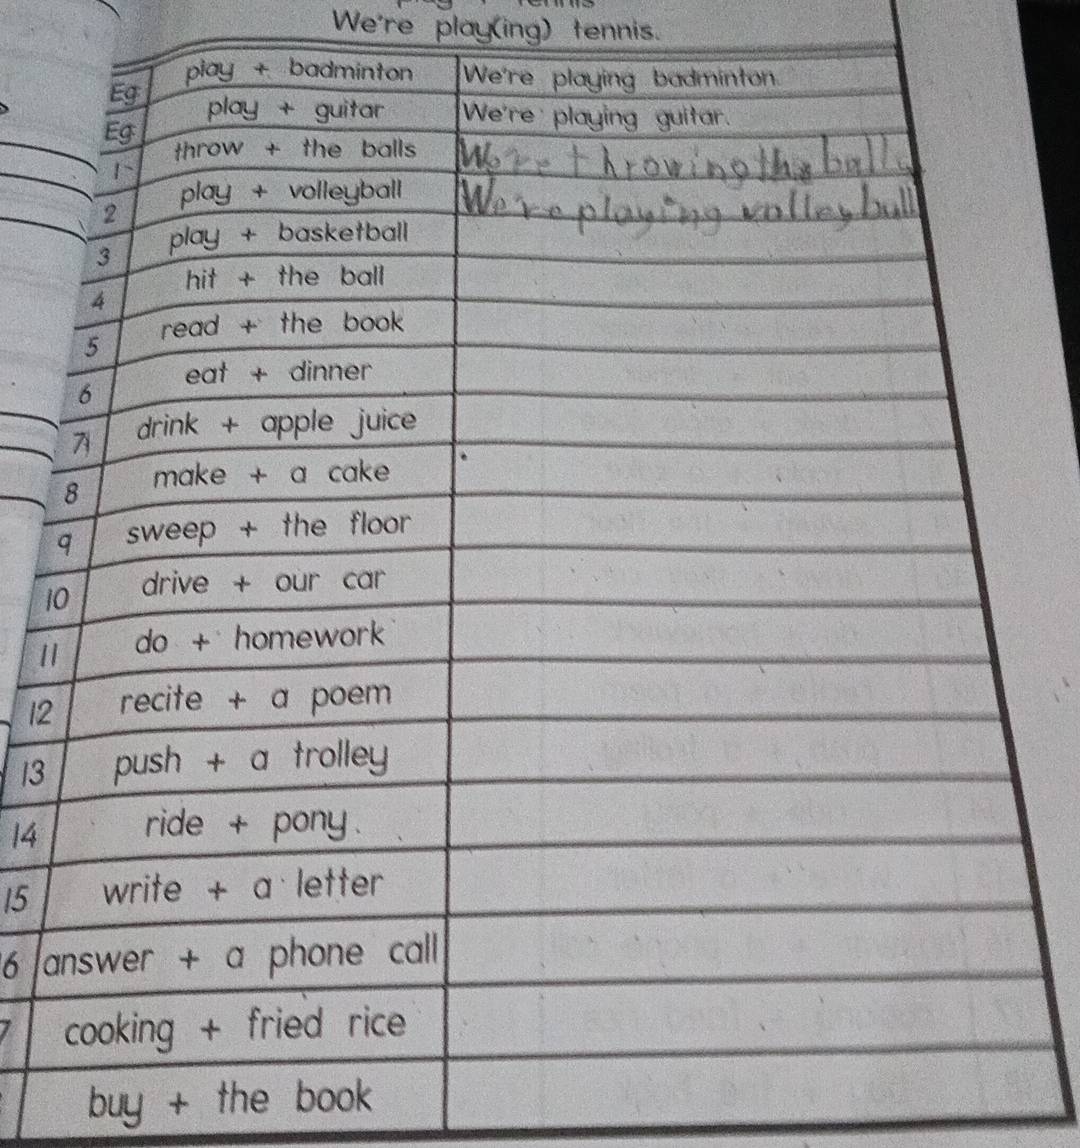 We're play(ing) tennis.
Eg play + badminton We're playing badminton.
Eg play + guitar We're playing guitar.
1 throw + the balls We're throwing the balls
2 play + volleyball We're playing volleyball
3 play + basketball
4 hit + the ball
5 read + the book
6 eat + dinner
7 drink + apple juice
8 make + a cake
9 sweep + the floor
10 drive + our car
11 do + homework
12 recite + a poem
13 push + a trolley
14 ride + pony.
15 write + a letter
6 answer + a phone call
7 cooking + fried rice
buy + the book